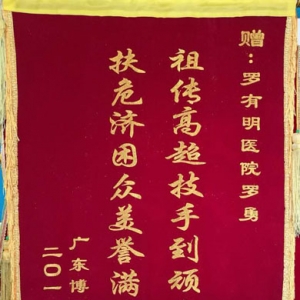 赠：罗有明医院罗勇
祖传高超技手到顽
扶危济困众美誉满
广东博
二〇一